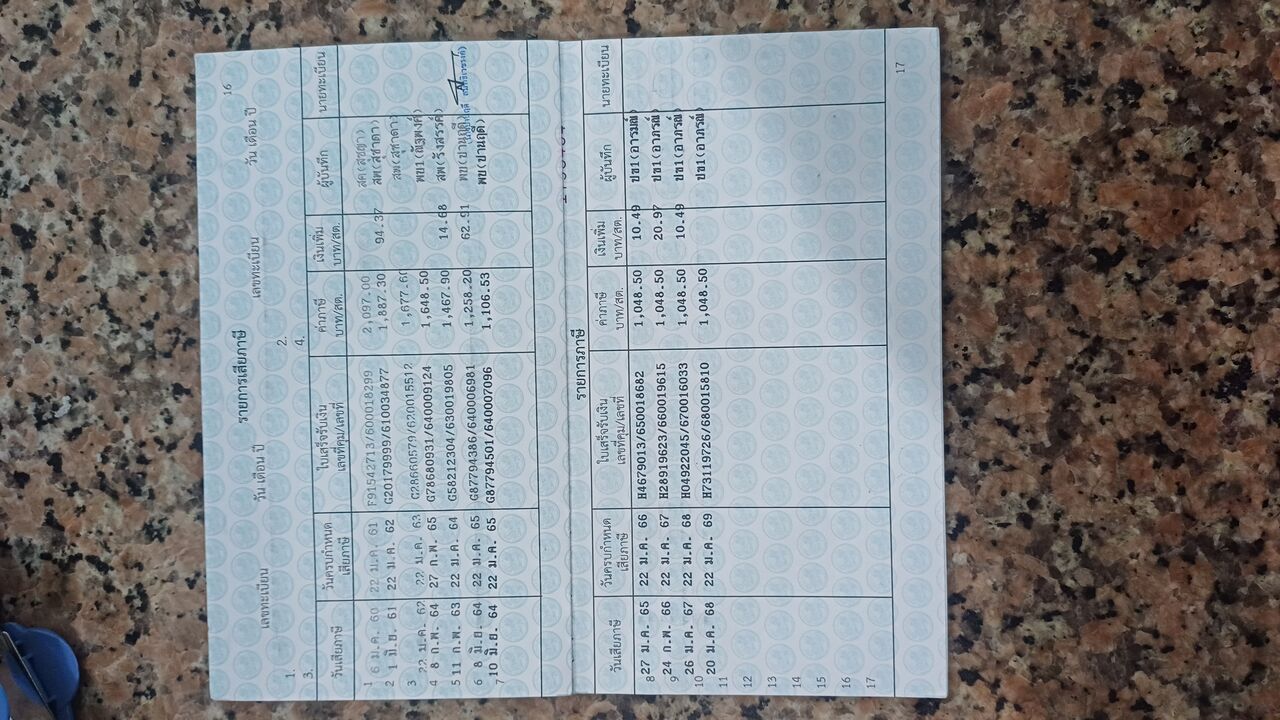 16
รายการเสียภาษี
เลขทะเบียน วัน เดือน ปี เลขทะเบียน วัน เดือน ปี
1. 2.
3. 4.
วันเสียภาษี วันครบกำหนด เสียภาษี ใบเสร็จรับเงิน เลขที่คุม/เลขที่ ค่าภาษี บาท/สต. เงินเพิ่ม บาท/สต. ผู้บันทึก นายทะเบียน
1 6 ม.ค. 60 22 ม.ค. 61 F91542713/600018299 2,097.00 สค(สุชญา)
2 1 มิ.ย. 61 22 ม.ค. 62 G20179999/610034877 1,887.30 94.37 สพ(สุชาดา)
3 22 ม.ค. 62 22 ม.ค. 63 G28660579/620015512 1,677.60 สพ(สุชาดา)
4 8 ก.พ. 64 27 ก.พ. 65 G78680931/640009124 1,648.50 พย1(ณัฐพงศ์)
5 11 ก.พ. 63 22 ม.ค. 64 G58212304/630019805 1,467.90 14.68 สพ(รังสรรค์)
6 8 มิ.ย. 64 22 ม.ค. 65 G87794386/640006981 1,258.20 62.91 พย(ปานฤดี)
7 10 มิ.ย. 64 22 ม.ค. 65 G87794501/640007096 1,106.53 พย(ปานฤดี)
รายการภาษี
วันเสียภาษี วันครบกำหนด เสียภาษี ใบเสร็จรับเงิน เลขที่คุม/เลขที่ ค่าภาษี บาท/สต. เงินเพิ่ม บาท/สต. ผู้บันทึก นายทะเบียน
8 27 ม.ค. 65 22 ม.ค. 66 H4679013/650018682 1,048.50 10.49 ปช1(อารมณ์)
9 24 ก.พ. 66 22 ม.ค. 67 H28919623/660019615 1,048.50 20.97 ปช1(อาภรณ์)
10 26 ม.ค. 67 22 ม.ค. 68 H04922045/670016033 1,048.50 10.49 ปช1(อาภรณ์)
11 20 ม.ค. 68 22 ม.ค. 69 H73119726/680015810 1,048.50 ปช1(อาภรณ์)
12
13
14
15
16
17
17